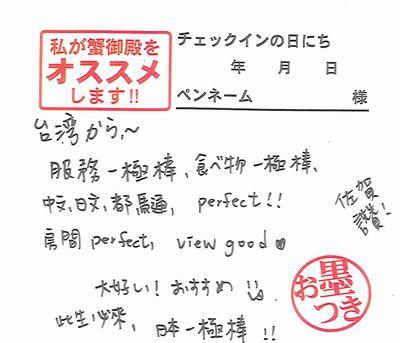 私が蟹御殿を
オススメ
します!!
チェックインの日にち
年 月 日
ペンネーム 様
台湾から~
服務一極棒、食べ物一極棒、
中文、日文、都馬通, perfect!!
房間 perfect, view good♥
佐賀
讃!
大好い! おすすめ!!
此生必來, 日本一極棒!!
お墨つき